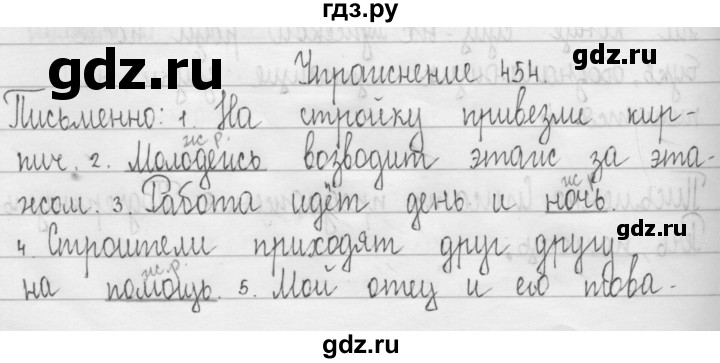 гдз.ру
gdz.ru
gdz.ru
Упражнение 454.
Письменно: 1. На стройку привезли кир-
ж.р.
пич. 2. Молодёжь возводит этаж за эта-
ж.р.
жом. 3. Работа идёт день и ночь.
4. Строители приходят друг другу
ж.р.
на помощь. 5. Мой отец и его това-
gdz.ru
gdz.ru